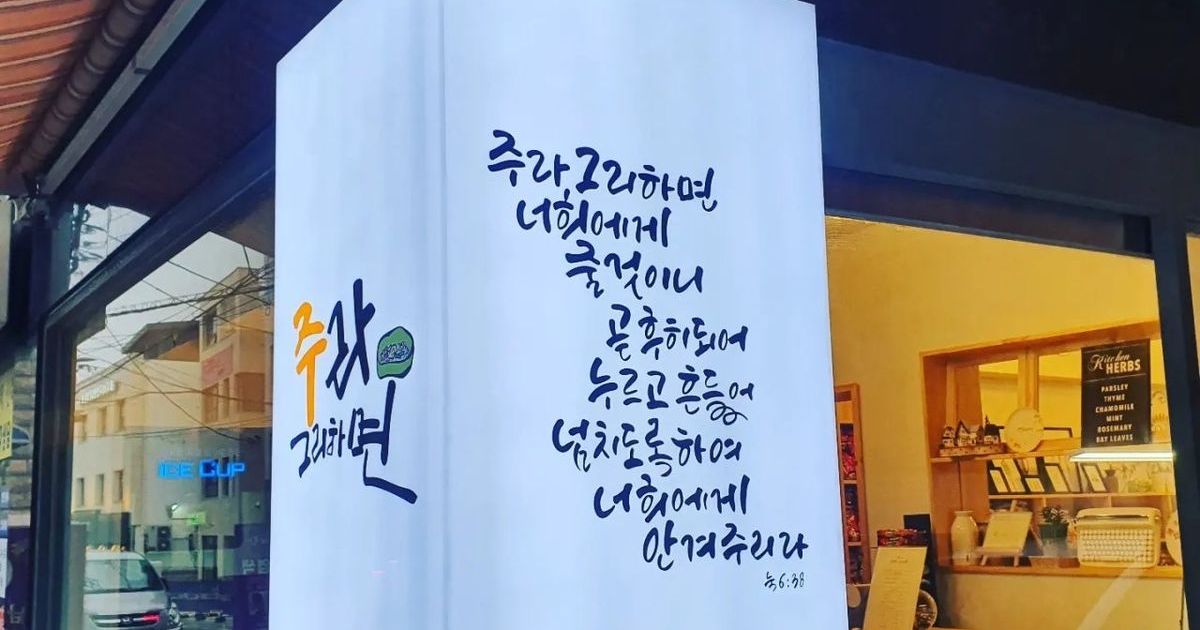 주라
그리하면
주라, 그리하면
너희에게
줄것이니
곧 후히되어
누르고 흔들어
넘치도록하여
너희에게
안겨주리라
눅6:38
ICE CUP
Kitchen
HERBS
PARSLEY
THYME
CHAMOMILE
MINT
ROSEMARY
BAY LEAVES